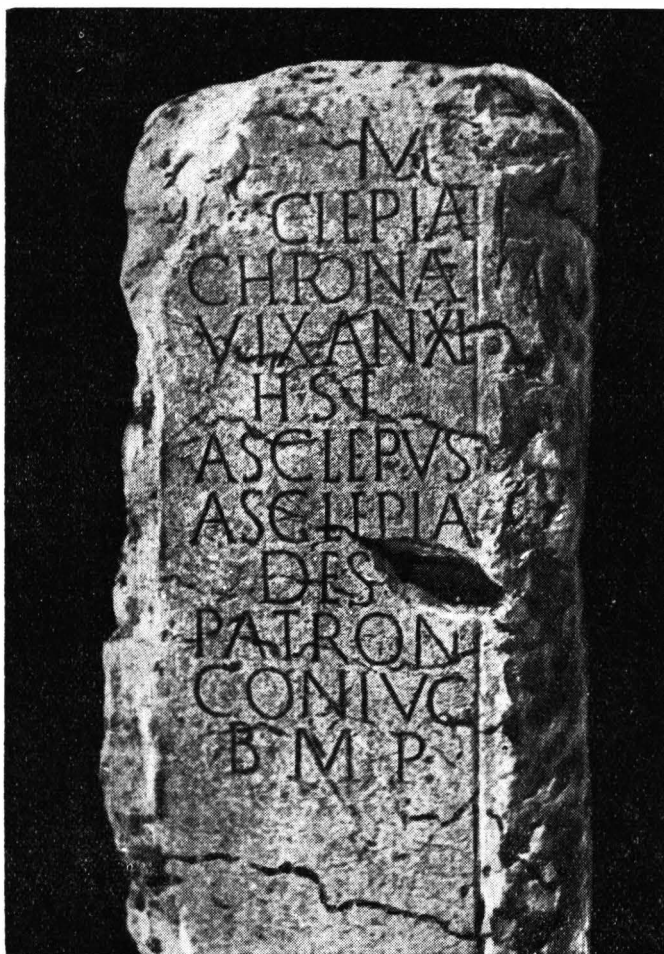 M
CLEPIA
CHRONÆ
VIXANXL
HSE
ASCLEPVS
ASCLEPIA
DES
PATRON
CONIVG
B M P